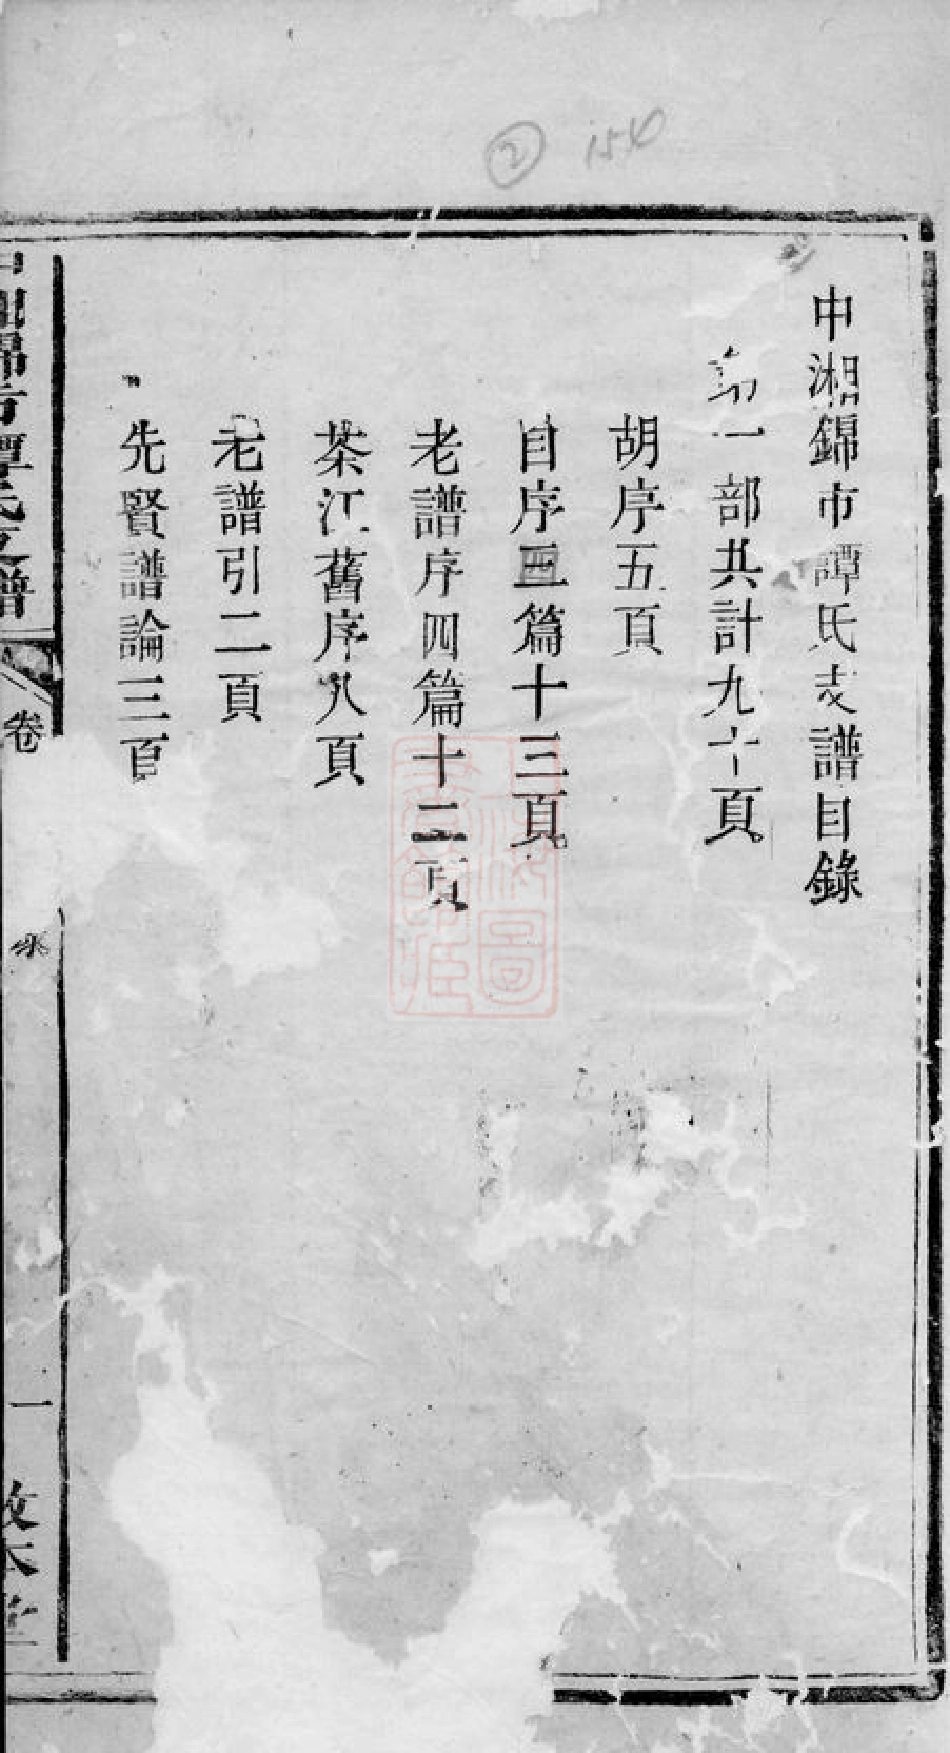 ② 150
中湘錦市譚氏支譜目錄
第一部共計九十頁
胡序五頁
自序四篇十三頁
老譜序四篇十二頁
茶江舊序八頁
老譜引二頁
先賢譜論三頁
中湘錦市譚氏支譜
卷
一
敦本堂